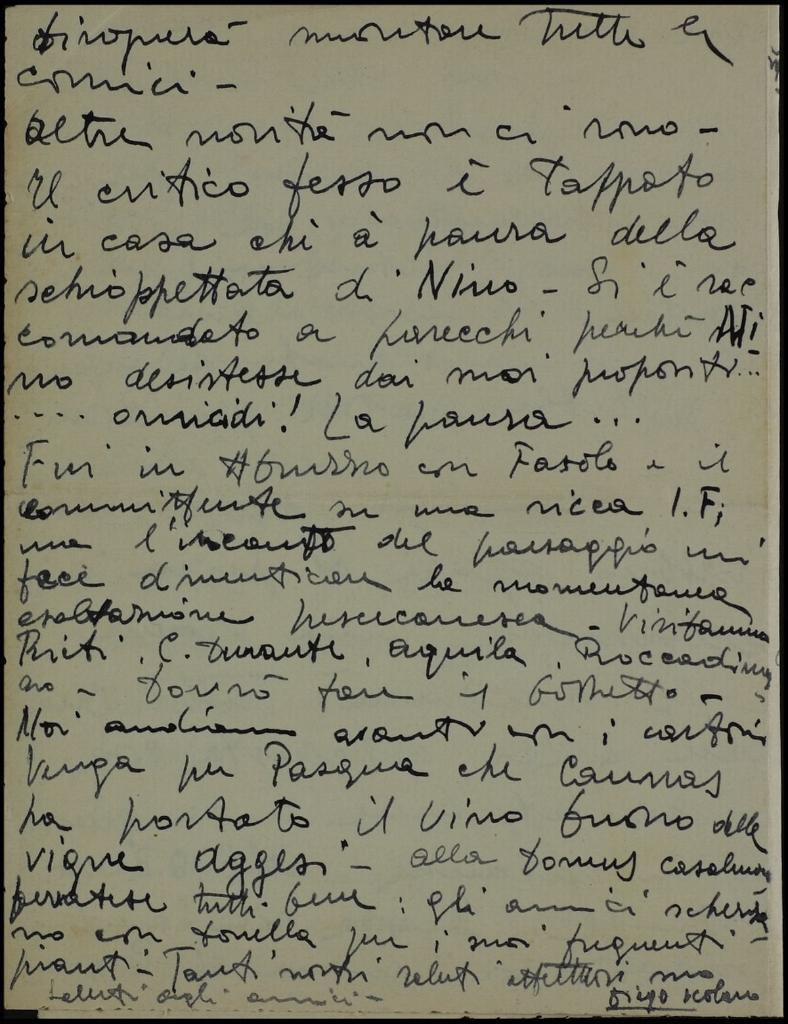 montare tutte le
cornici -
Altre novità non ci sono -
Il critico fesso è tappato
in casa chè à paura della
schioppettata di Nino - Si è rac
comandato a parecchi perchè Ni
no desistesse dai suoi propositi...
.... omicidi! La paura ...
Fui in Abruzzo con Fasolo e il
committente su una ricca 1.F;
ma l'incanto del paesaggio mi
fece dimenticare la momentanea
esaltazione pescecanesca - Visitammo
Rieti, C. Durante, Aquila, Roccadimez
zo - Dovrò fare il bozzetto -
Noi andiamo avanti con i cartoni
Venga per Pasqua che
ha portato il vino buono delle
vigne aggesi - alla Domus
tutti bene: gli amici scherza
no con Donella per i suoi frequenti
pianti - Tanti nostri saluti affettuosi suo
Saluti agli amici - Diego